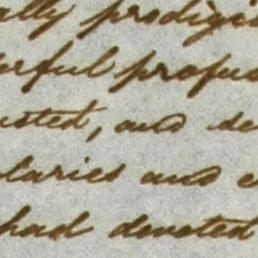 ally prodigi
erful profus
usted, and de
alaries and e
had devoted